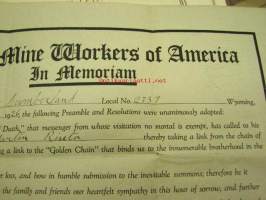 Mine Workers of America
In Memoriam
Cumberland Local No. 2737 Wyoming,
1926 the following Preamble and Resolutions were unanimously adopted:
Death," that messenger from whose visitation no mortal is exempt, has called to his
thereby taking a link from the chain of
ng a link to the "Golden Chain" that binds us to the innumerable brotherhood in the
r loss, and in humble submission to the inevitable summons; therefore be it
the family and friends our heartfelt sympathy in this hour of sorrow, and further